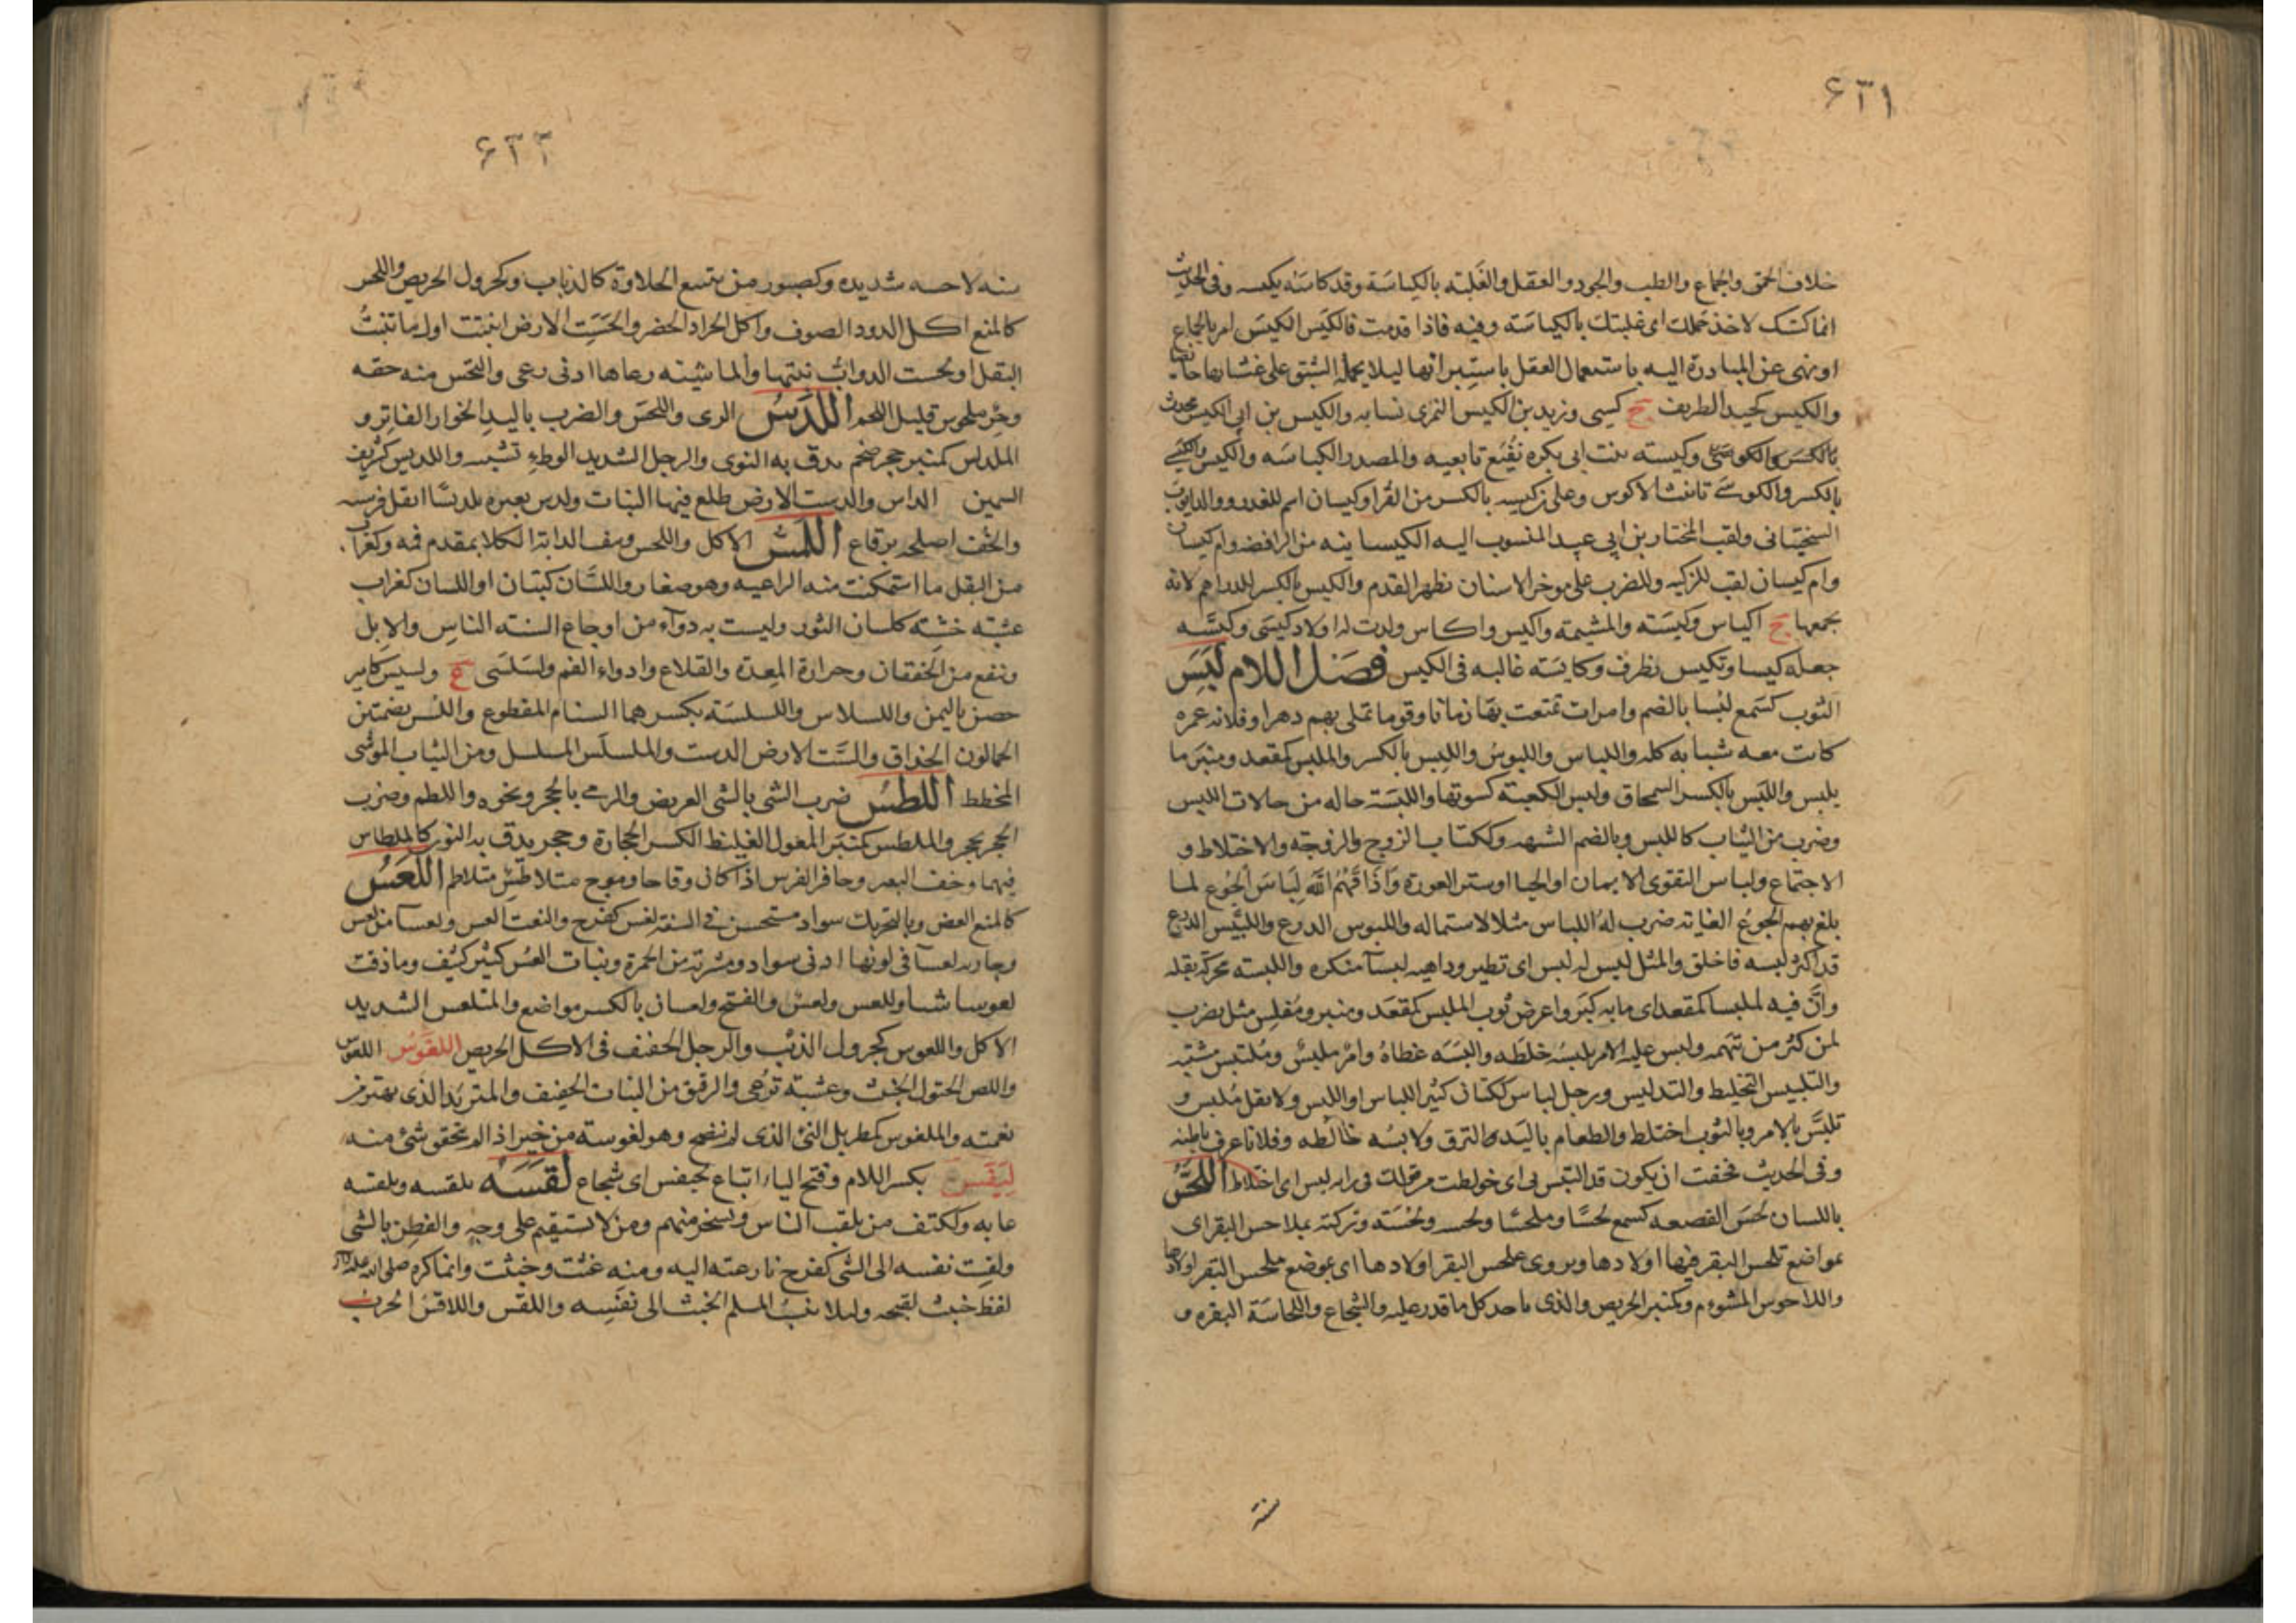 ۶۳۱
خلاف الحمق والجماع والطب والجود والعقل والغلبة بالكياسة وقد كاسه يكيسه وفى الحديث
انما كستك لاخذ جملك اى غلبتك بالكياسة وفيه فاذا قدمت فالكيس الكيس امر بالجماع
او نهى عن المبادرة اليه باستعمال العقل باستبرائها ليلا يحمله الشبق على غشيانها حايضا
والكيس كجيد الظريف ج كيسى وزيد بن الكيس النمرى نسابه والكيس بن ابى الكيس محدث
وكيسة بنت ابى بكره نفيع تابعيه والمصدر الكياسه والكيس
بالكسر والكوسى تانيث الاكوس وعلى بن كيسه بالكسر من القرا وكيسان اسم للغدر ووالد ايوب
السختيانى ولقب المختار بن ابى عبيد المنسوب اليه الكيسانيه من الرافضه وام كيسان
وام كيسان لقب للركبه وللضرب على موخر الانسان بظهر القدم والكيس بالكسر للدراهم لانه
يجمعها ج اكياس وكيسة والمشيمة واكيس واكاس ولدت له اولاد كيسى وكيسه
جعله كيسا وتكيس تظرف وكايسه غالبه فى الكيس فصل اللام لبس
الثوب كسمع لبسا بالضم وامراة تمتعت بها زمانا وقوما تملى بهم دهرا وفلانة عمره
كانت معه شبابه كله واللباس واللبوس واللبس بالكسر والملبس كمقعد ومنبر ما
يلبس واللبس بالكسر السمحاق ولبس الكعبة كسوتها واللبسة حاله من حالات اللبس
وضرب من الثياب كاللبس وبالضم الشبهه وككتاب الزوج والزوجة والاختلاط و
الاجتماع ولباس التقوى الايمان او الحيا او ستر العورة واذاقهم الله لباس الجوع لما
بلغ بهم الجوع الغاية ضرب له اللباس مثلا لاشتماله واللبوس الدرع واللبيس الدرع
قد اكثر لبسه فاخلق والمثل ليس له لبس اى نظير وداهية لبسا منكره واللبسة محركة بقله
وان فيه لملبسا كمقعد اى ما به كبر واعرض ثوب الملبس كمقعد ومنبر ومفلس مثل يضرب
لمن كثر من تتهمه ولبس عليه الامر يلبسه خلطه والبسه غطاه وامر ملبس وملتبس مشتبه
والتلبيس التخليط والتدليس ورجل لباس ككتان كثير اللباس او اللبس ولا تقل ملبس و
تلبس بالامر وبالثوب اختلط والطعام باليد التزق ولابسه خالطه وفلانا عرف باطنه
وفى الحديث فخفت ان يكون قد التبس بى اى خولطت من قولك فى رايه لبس اى اختلاط اللحس
باللسان لحس القصعه كسمع لحسا وملحسا ولحسة ولحسة وتركته بملاحس البقر اى
بمواضع تلحس البقر فيها اولادها ويروى بملحس البقر اولادها اى بموضع ملحس البقر اولادها
واللاحوس المشووم وكمنبر الحريص والذى ياخذ كل ما قدر عليه والشجاع واللحاسة البقره و
سنه
۶۳۲
سنه لاحسه شديده وكصبور من يتتبع الحلاوة كالذباب وكجرول الحريص واللحس
كالمنع اكل الدود الصوف واكل الجراد الخضر والحست الارض انبتت اول ما تنبت
البقل او لحست الدواب نبتها والماشية رعاها ادنى رعى والتحس منه حقه
ملحوس قليل اللحم اللدس الرمى واللحس والضرب باليد الخوار الفاتر و
الملدس كمنبر حجر ضخم يدق به النوى والرجل الشديد الوطء تشبيه واللديس كشريف
السمين والدست الارض طلع فيها النبات ولدس بعيره تلديسا انعل فرسه
والخف اصلحه برقاع اللس الاكل واللحس ونتف الدابه الكلا بمقدم فمه وكغراب
من البقل ما استمكنت منه الراعيه وهو صغار واللسان كتبان او اللسان كغراب
عشبة خشنة كلسان الثور وليست به دواء من اوجاع السنه الناس والابل
وتنفع من الخفقان وحرارة المعدة والقلاع وادواء الفم ولسلسى ع ولسيس كامير
حصن باليمن واللسلاس واللسلسة بكسرهما السنام المقطوع واللس بضمتين
الحمالون الحذاق والست الارض الدست والملسلس المسلسل ومن الثياب الموشى
المخطط اللطس ضرب الشى بالشى العريض والرمى بالحجر ونحوه واللطم وضرب
الحجر بحجر والملطس كمنبر المعول الغليظ لكسر الحجارة وحجر يدق به النوى كالملطاس
فيهما وخف البعير وحافر الفرس اذا كان وقاحا وموج متلاطس متلاطم اللعس
كالمنع العض وبالتحريك سواد مستحسن فى الشفة لعس كفرح والنعت العس ولعسا من لعس
وجارية لعسا فى لونها ادنى سواد ومشربة من الحمرة ونبات العس كثير كثيف وما ذقت
لعوسا شيا ولعس ولعس والفتح ولعسان بالكسر مواضع والمتلعس الشديد
الاكل واللعوس كجرول الذئب والرجل الخفيف فى الاكل الحريص اللغوس اللغوس
واللص الختول الخبيث وعشبة ترعى والرقيق من النبات الخفيف والمتربد الذى يهتز من
نعمته والملغوس كمطربل النى الذى لم ينضج وهو لغوسة من خبر اذا لم تحقق شى منه
ليقس بكسر اللام وفتح الياء اتباع لحيفس اى شجاع لقسه يلقسه ويلقسه
عابه وككتف من يلقب الناس ويسخر منهم ومن لا يستقيم على وجه والفطن بالشى
ولقست نفسه الى الشى كفرح نازعته اليه ومنه غثت وخبثت وانما كره صلى الله عليه
لفظ خبث لقبحه وليلا ينسب المسلم الخبث الى نفسه واللقس واللاقس الجرب